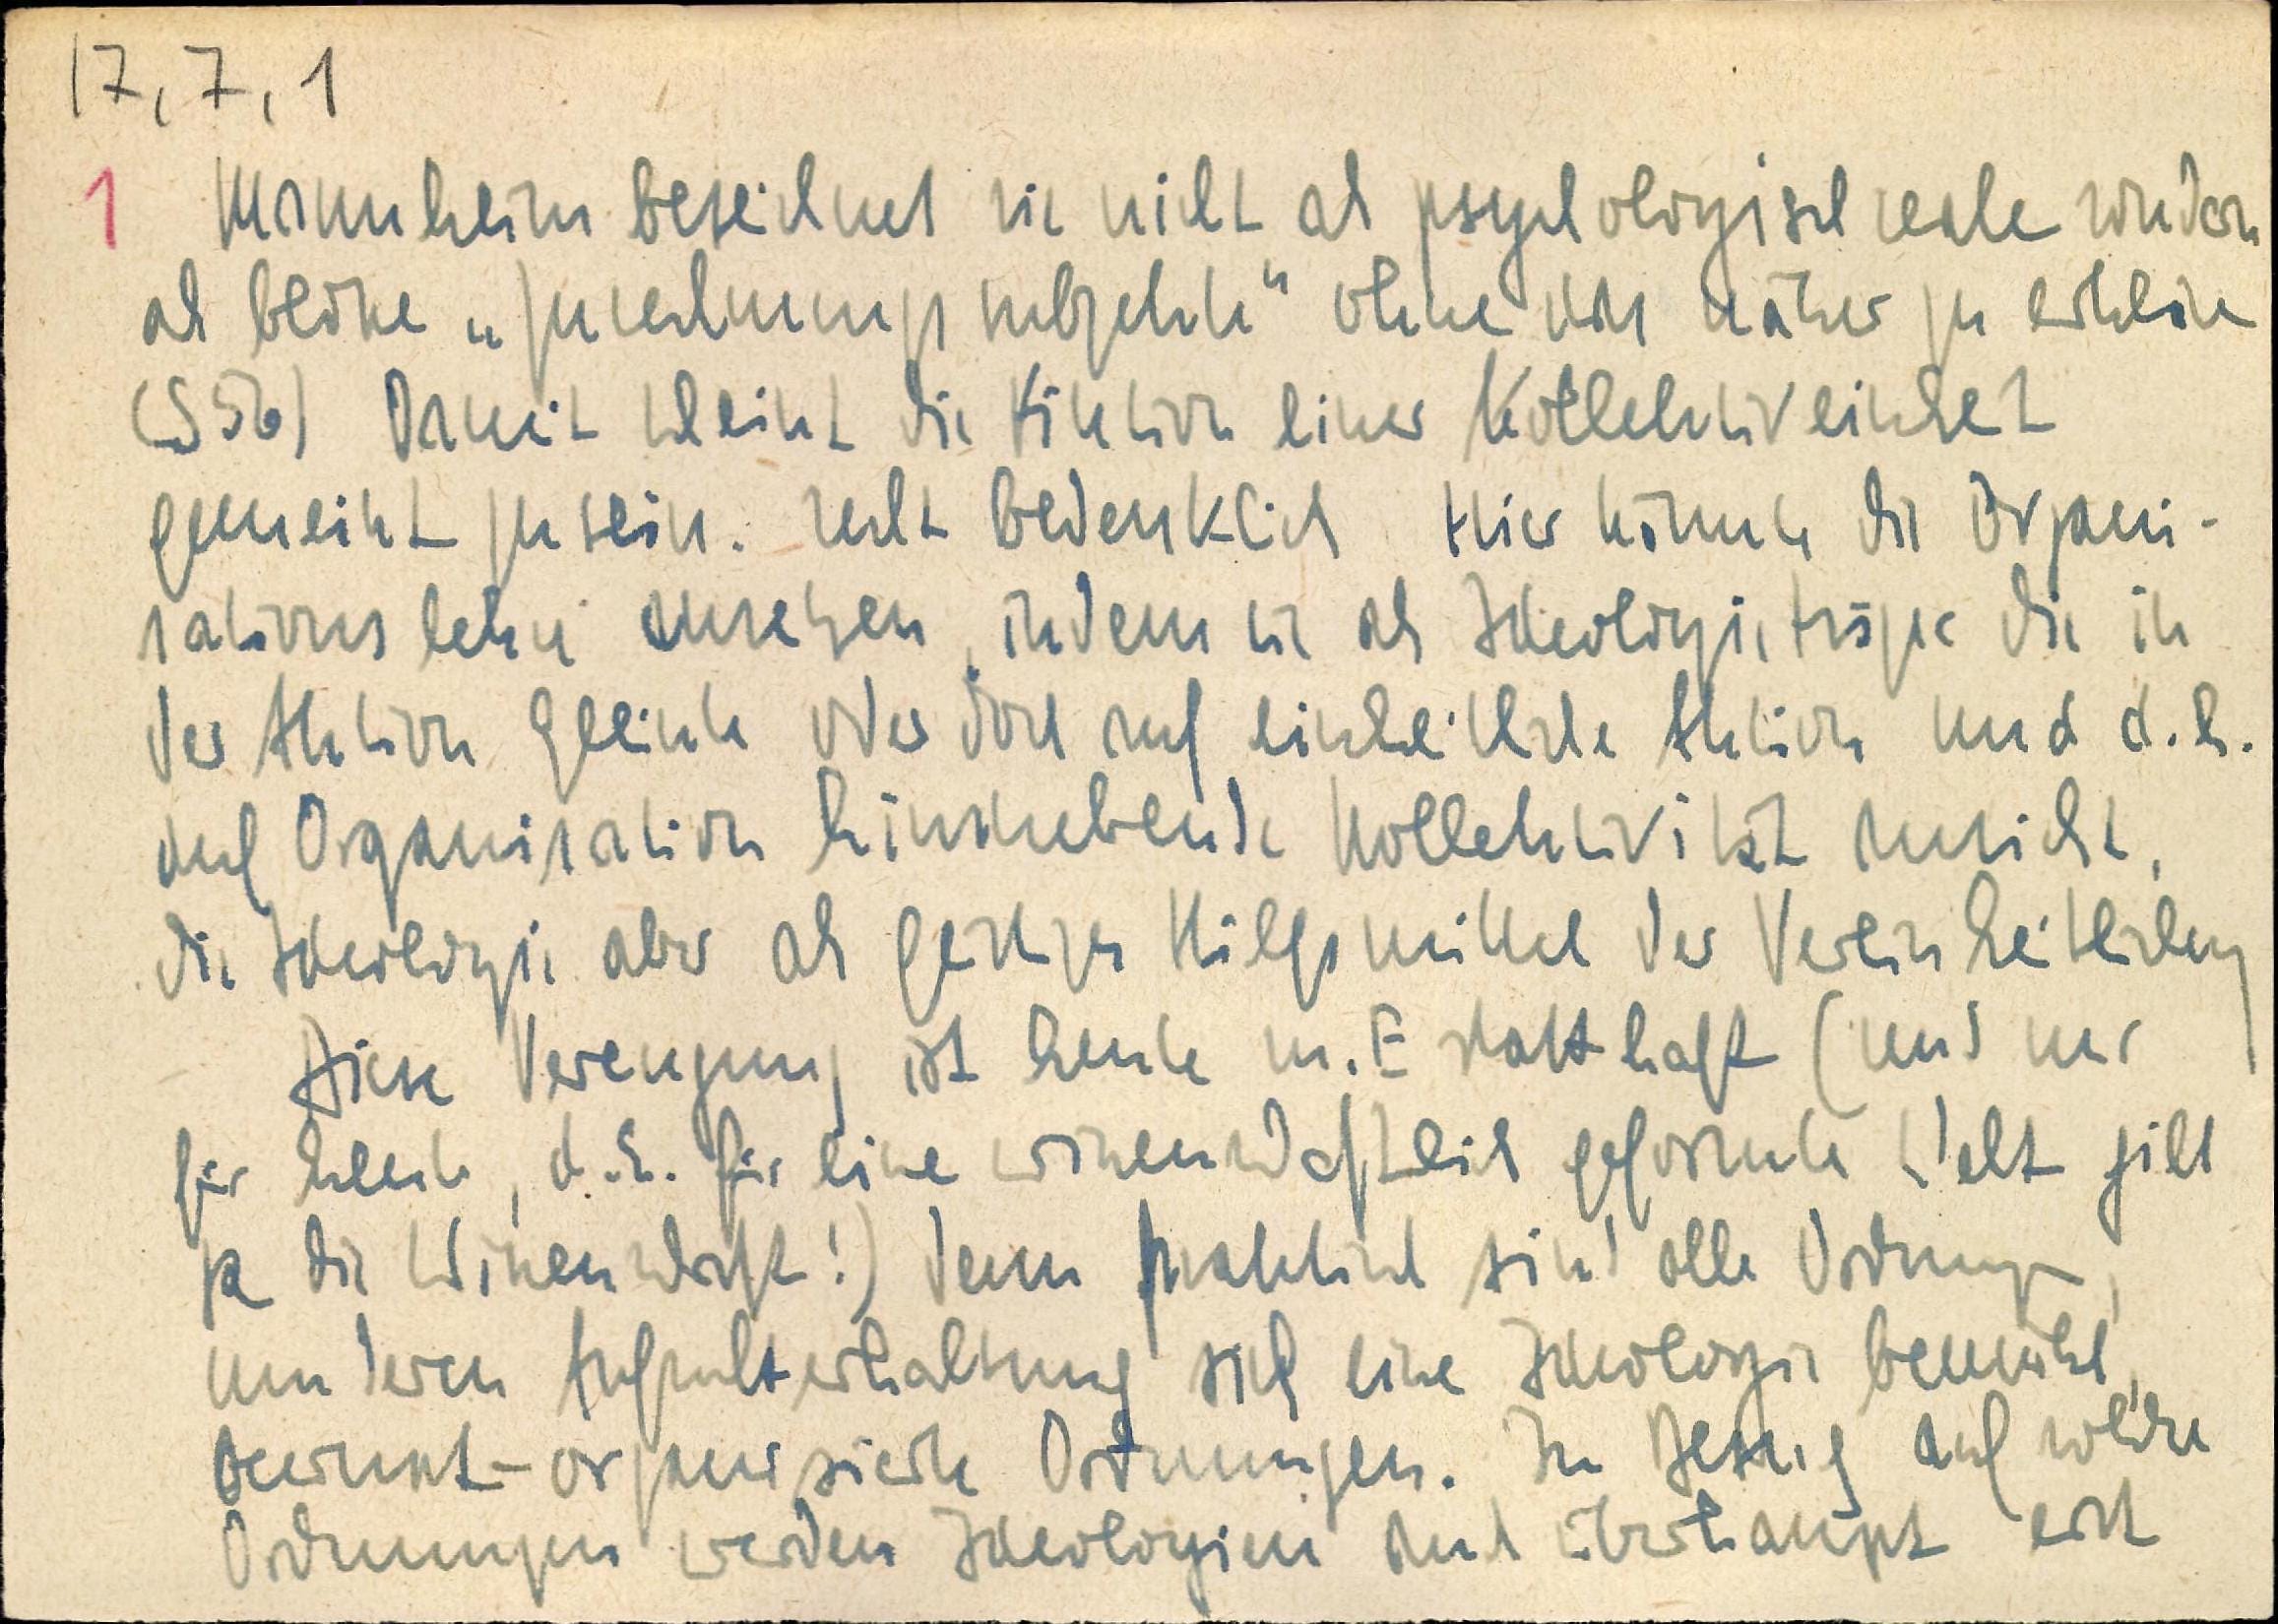 17,7,1
1 Mannheim bezeichnet sie nicht als psychologisch reale sondern
als bloße „Zurechnungssubjekte“ ohne das näher zu erklären
(S 56) Damit scheint die Fiktion einer Kollektiveinheit
gemeint zu sein. recht bedenklich Hier könnte die Organi-
sationslehre ansetzen, indem sie als Ideologieträger die in
der Aktion geeinte oder doch auf einheitliche Aktion und d.h.
auf Organisation hinstrebende Kollektivität ansieht,
die Ideologie aber als geistiges Hilfsmittel der Vereinheitlichung
Diese Verengung ist heute m.E statthaft (und nur
für heute, d.h. für eine wissenschaftlich geformte Welt gilt
ja die Wissenschaft!) denn praktisch sind alle Ordnungen,
um deren Aufrechterhaltung sich eine Ideologie bemüht,
bewusst-organisierte Ordnungen. In Bezug auf welche
Ordnungen werden Ideologien auch überhaupt erst